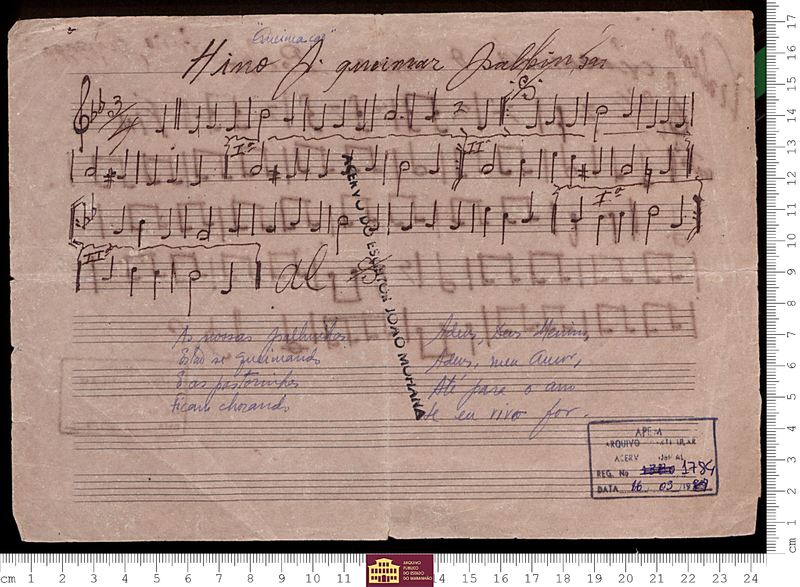 "Queimação"
Hino p. queimar palhinhas
3/4
Iª
2
IIª
Iª
IIª
al
ACERVO DO ESCRITOR JOÃO MOHANA
As nossas palhinhas
Estão se queimando
E as pastorinhas
Ficam chorando
Adeus, Deus Menino,
Adeus, meu Amor,
Até para o ano
Se eu vivo for.
APEM
ARQUIVO
ACERV
REG. No 1784
DATA 16 03
ARQUIVO
PÚBLICO
DO ESTADO
DO MARANHÃO
cm 1 2 3 4 5 6 7 8 9 10 11 14 15 16 17 18 19 20 21 22 23 24
cm 1 2 3 4 5 6 7 8 9 10 11 12 13 14 15 16 17